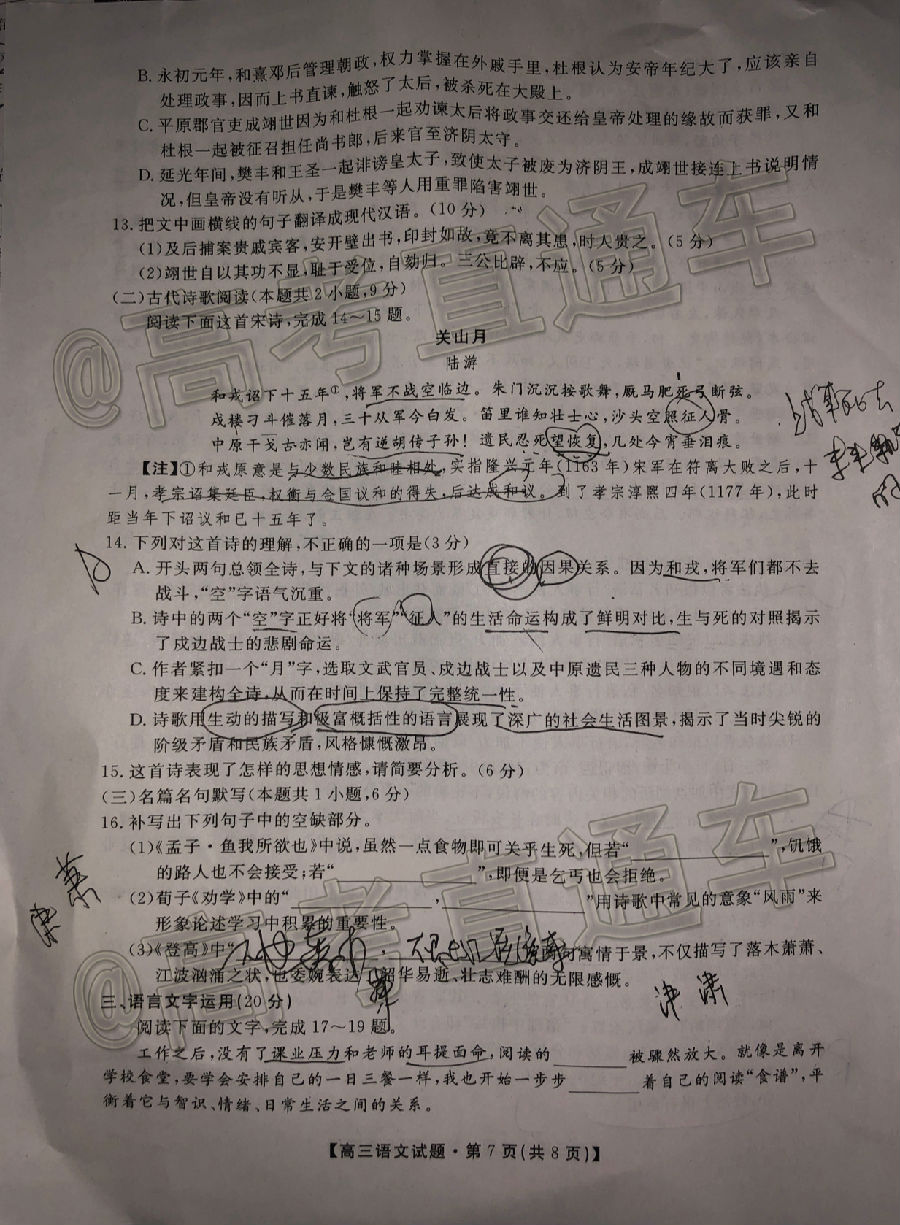 B. 永初元年,和熹邓后管理朝政,权力掌握在外戚手里,杜根认为安帝年纪大了,应该亲自
处理政事,因而上书直谏,触怒了太后,被杀死在大殿上。
C. 平原郡官吏成翊世因为和杜根一起劝谏太后将政事交还给皇帝处理的缘故而获罪,又和
杜根一起被征召担任尚书郎,后来官至济阴太守。
D. 延光年间,樊丰和王圣一起诽谤皇太子,致使太子被废为济阴王,成翊世接连上书说明情
况,但皇帝没有听从,于是樊丰等人用重罪陷害翊世。
13. 把文中画横线的句子翻译成现代汉语。(10 分)
(1)及后捕案贵戚宾客,安开壁出书,印封如故,竟不离其患,时人贵之。(5 分)
(2)翊世自以其功不显,耻于受位,自劾归。三公比辟,不应。(5 分)
(二)古代诗歌阅读(本题共 2 小题,9 分)
阅读下面这首宋诗,完成 14～15 题。
关山月
陆游
和戎诏下十五年①,将军不战空临边。朱门沉沉按歌舞,厩马肥死弓断弦。
戍楼刁斗催落月,三十从军今白发。笛里谁知壮士心,沙头空照征人骨。
中原干戈古亦闻,岂有逆胡传子孙!遗民忍死望恢复,几处今宵垂泪痕。
【注】①和戎原意是与少数民族和睦相处,实指隆兴元年(1163 年)宋军在符离大败之后,十
一月,孝宗诏集廷臣,权衡与金国议和的得失,后达成和议。到了孝宗淳熙四年(1177 年),此时
距当年下诏议和已十五年了。
14. 下列对这首诗的理解,不正确的一项是(3 分)
A. 开头两句总领全诗,与下文的诸种场景形成直接的因果关系。因为和戎,将军们都不去
战斗,“空”字语气沉重。
B. 诗中的两个“空”字正好将“将军”“征人”的生活命运构成了鲜明对比,生与死的对照揭示
了戍边战士的悲剧命运。
C. 作者紧扣一个“月”字,选取文武官员、戍边战士以及中原遗民三种人物的不同境遇和态
度来建构全诗,从而在时间上保持了完整统一性。
D. 诗歌用生动的描写和极富概括性的语言展现了深广的社会生活图景,揭示了当时尖锐的
阶级矛盾和民族矛盾,风格慷慨激昂。
15. 这首诗表现了怎样的思想情感,请简要分析。(6 分)
(三)名篇名句默写(本题共 1 小题,6 分)
16. 补写出下列句子中的空缺部分。
(1)《孟子·鱼我所欲也》中说,虽然一点食物即可关乎生死,但若“____________”,饥饿
的路人也不会接受;若“____________”,即便是乞丐也会拒绝。
(2)荀子《劝学》中的“____________,____________”用诗歌中常见的意象“风雨”来
形象论述学习中积累的重要性。
(3)《登高》中“
句寓情于景,不仅描写了落木萧萧、
江波汹涌之状,也委婉表达了韶华易逝、壮志难酬的无限感慨。
三、语言文字运用(20 分)
阅读下面的文字,完成 17～19 题。
工作之后,没有了课业压力和老师的耳提面命,阅读的________被骤然放大。就像是离开
学校食堂,要学会安排自己的一日三餐一样,我也开始一步步________着自己的阅读“食谱”,平
衡着它与智识、情绪、日常生活之间的关系。
【高三语文试题·第 7 页(共 8 页)】
@高考直通车
@高考直通车